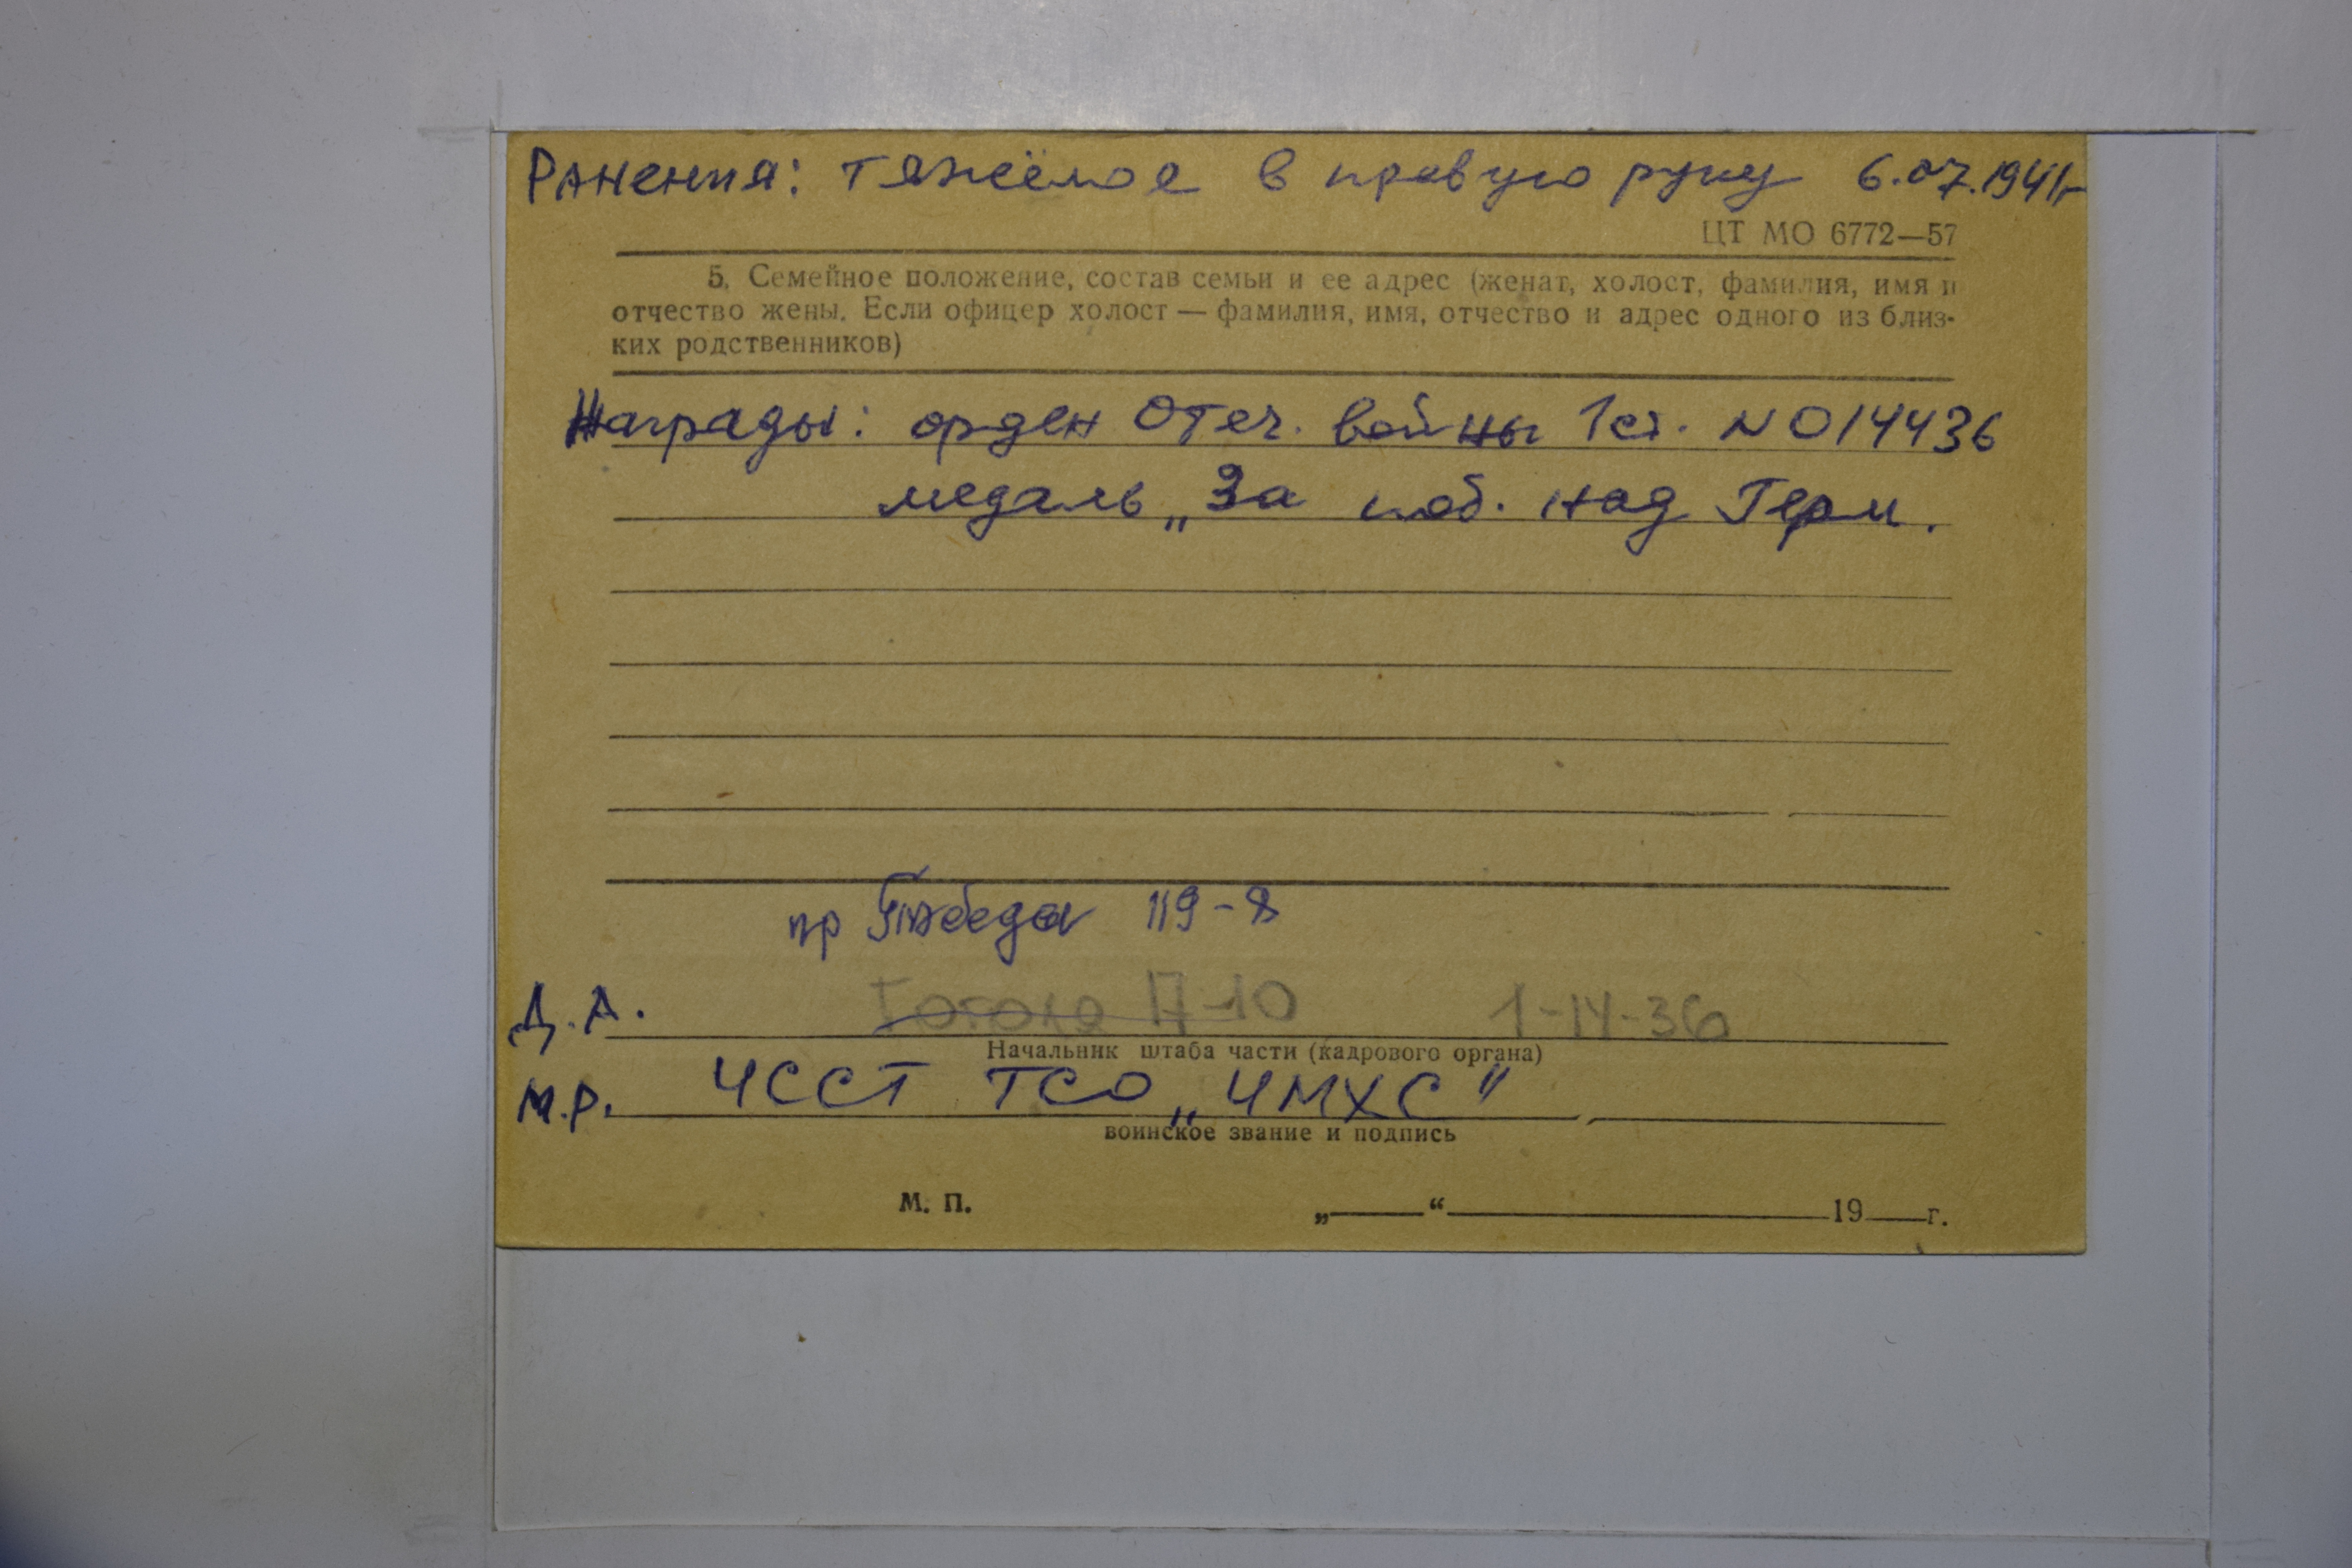 Ранения: тяжёлое в правую руку 6.07.1941г
ЦТ МО 6772—57
5. Семейное положение, состав семьи и ее адрес (женат, холост, фамилия, имя и
отчество жены. Если офицер холост — фамилия, имя, отчество и адрес одного из близ-
ких родственников)
Награды: орден Отеч. войны 1ст. N014436
медаль „За поб. над Герм.
пр Победы 119-8
Д.А. 17-10 1-14-36
Начальник штаба части (кадрового органа)
М.Р. ЧССТ ТСО „ЧМХС"
воинское звание и подпись
М. П. „ “ 19 г.